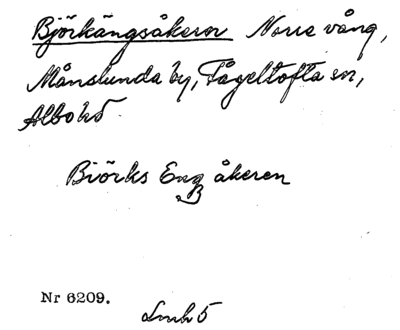 Björkängsåkern Norra vång,
Månslunda by, Fågeltofta sn,
Albo hd.
Biörks Eng åkeren
Nr 6209.
Lmh 5